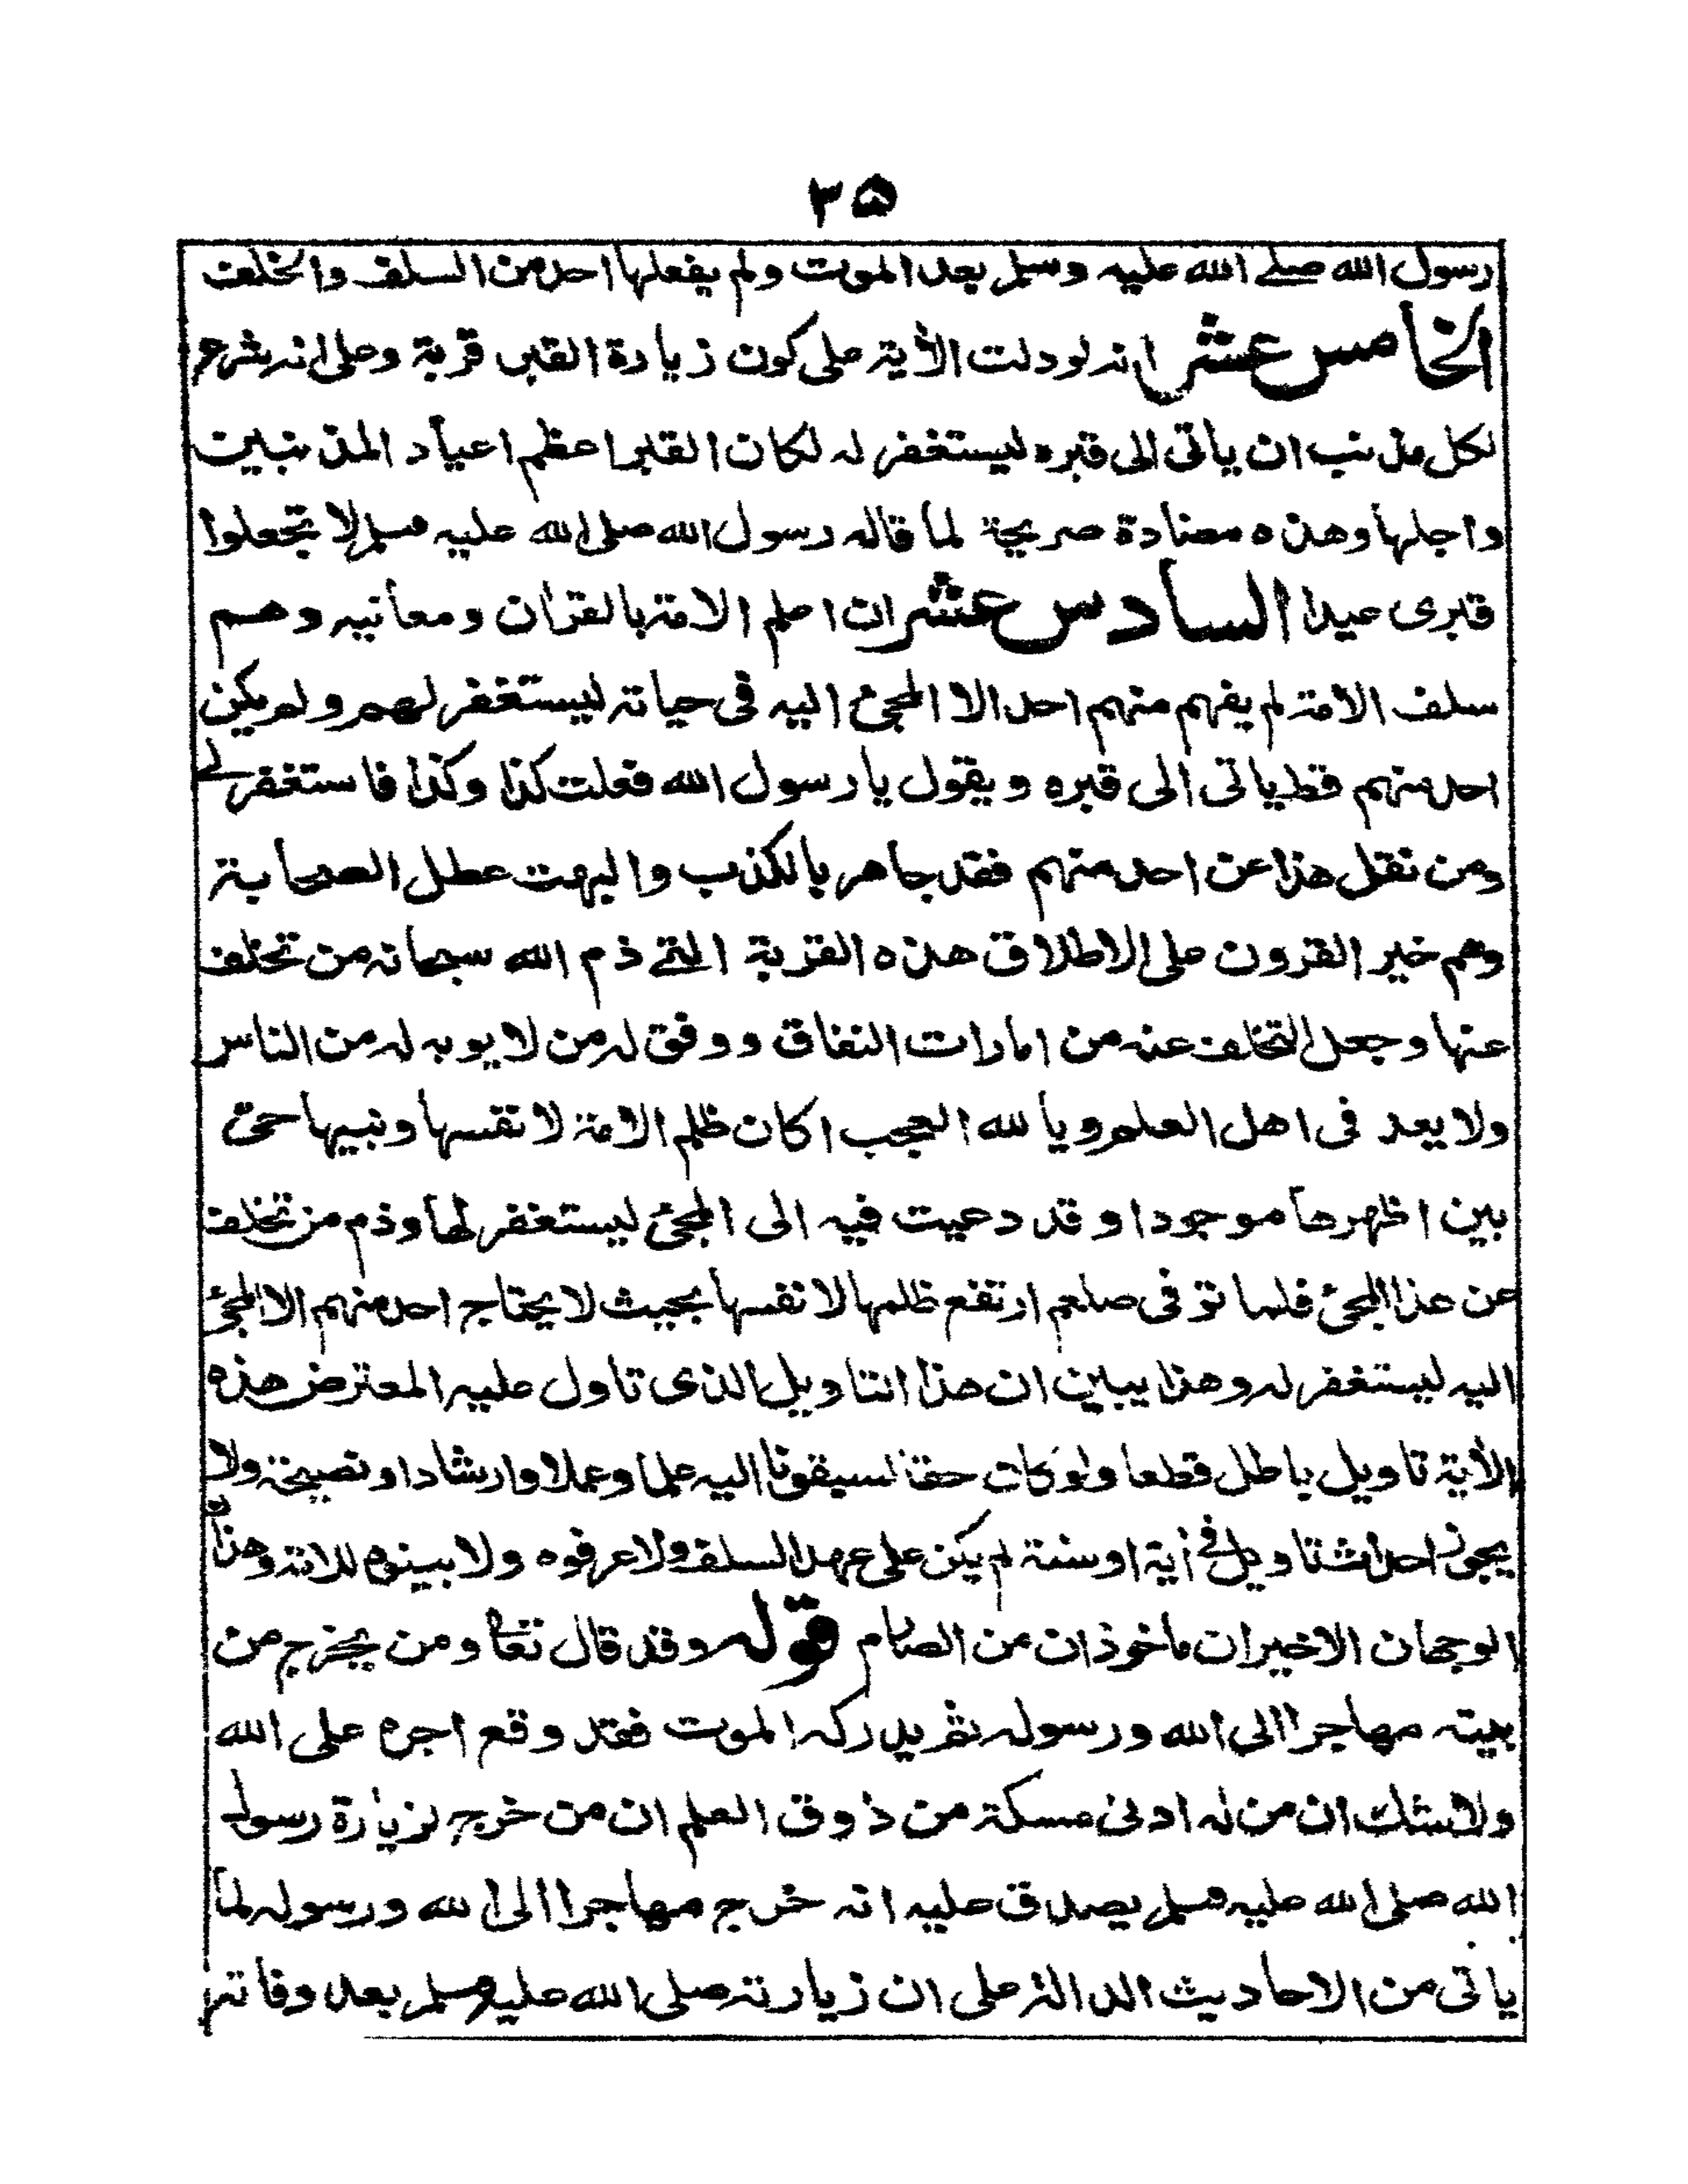 ٣٥
رسول الله صلے الله عليه وسلم بعد الموت ولم يفعلها احد من السلف والخلف
الخامس عشر انه لو دلت الأية على كون زيارة القبر قربة وعلى انه يشرع
لكل مذنب ان ياتى الى قبره ليستغفر له لكان القبر اعظم اعياد المذنبين
واجلها وهذه مضادة صريحة لما قاله رسول الله صلى الله عليه وسلم لا تجعلوا
قبرى عيدا السادس عشر ان اعلم الامة بالقرأن ومعانيه وهم
سلف الامة لم يفهم منهم احد الا المجئ اليه فى حياته ليستغفر لهم ولم يكن
احد منهم قط ياتى الى قبره ويقول يا رسول الله فعلت كذا وكذا فاستغفر لے
ومن نقل هذا عن احد منهم فقد جاهر بالكذب والبهت عطل الصحابة
وهم خير القرون على الاطلاق هذه القربة التے ذم الله سبحانه من تخلف
عنها وجعل التخلف عنه من امارات النفاق ووفق له من لا يوبه له من الناس
ولا يعد فى اهل العلم ويا لله العجب اكان ظلم الامة لانفسها ونبيها حى
بين اظهرها موجودا وقد دعيت فيه الى المجئ ليستغفر لها وذم من تخلف
عن هذا المجئ فلما توفى صلعم ارتفع ظلمها لانفسها بحيث لا يحتاج احد منهم الا المجئ
اليه ليستغفر له وهذا يبين ان هذا التاويل الذى تاول عليه المعترض هذه
الأية تاويل باطل قطعا ولو كان حقا لسبقونا اليه علما وعملا وارشادا ونصيحة ولا
يجوز احداث تاويل فے أية او سنة لم يكن على عهد السلف ولا عرفوه ولا بينوه للامة وهذان
الوجهان الاخيران ماخوذان من الصارم قوله وقد قال تعا ومن يخرج من
بيته مهاجرا الى الله ورسوله ثم يدركه الموت فقد وقع اجره على الله
ولا شك ان من له ادنى مسكة من ذوق العلم ان من خرج لزيارة رسول
الله صلى الله عليه وسلم يصدق عليه انه خرج مهاجرا الى الله ورسوله لما
ياتى من الاحاديث الدالة على ان زيارته صلى الله عليه وسلم بعد وفاته